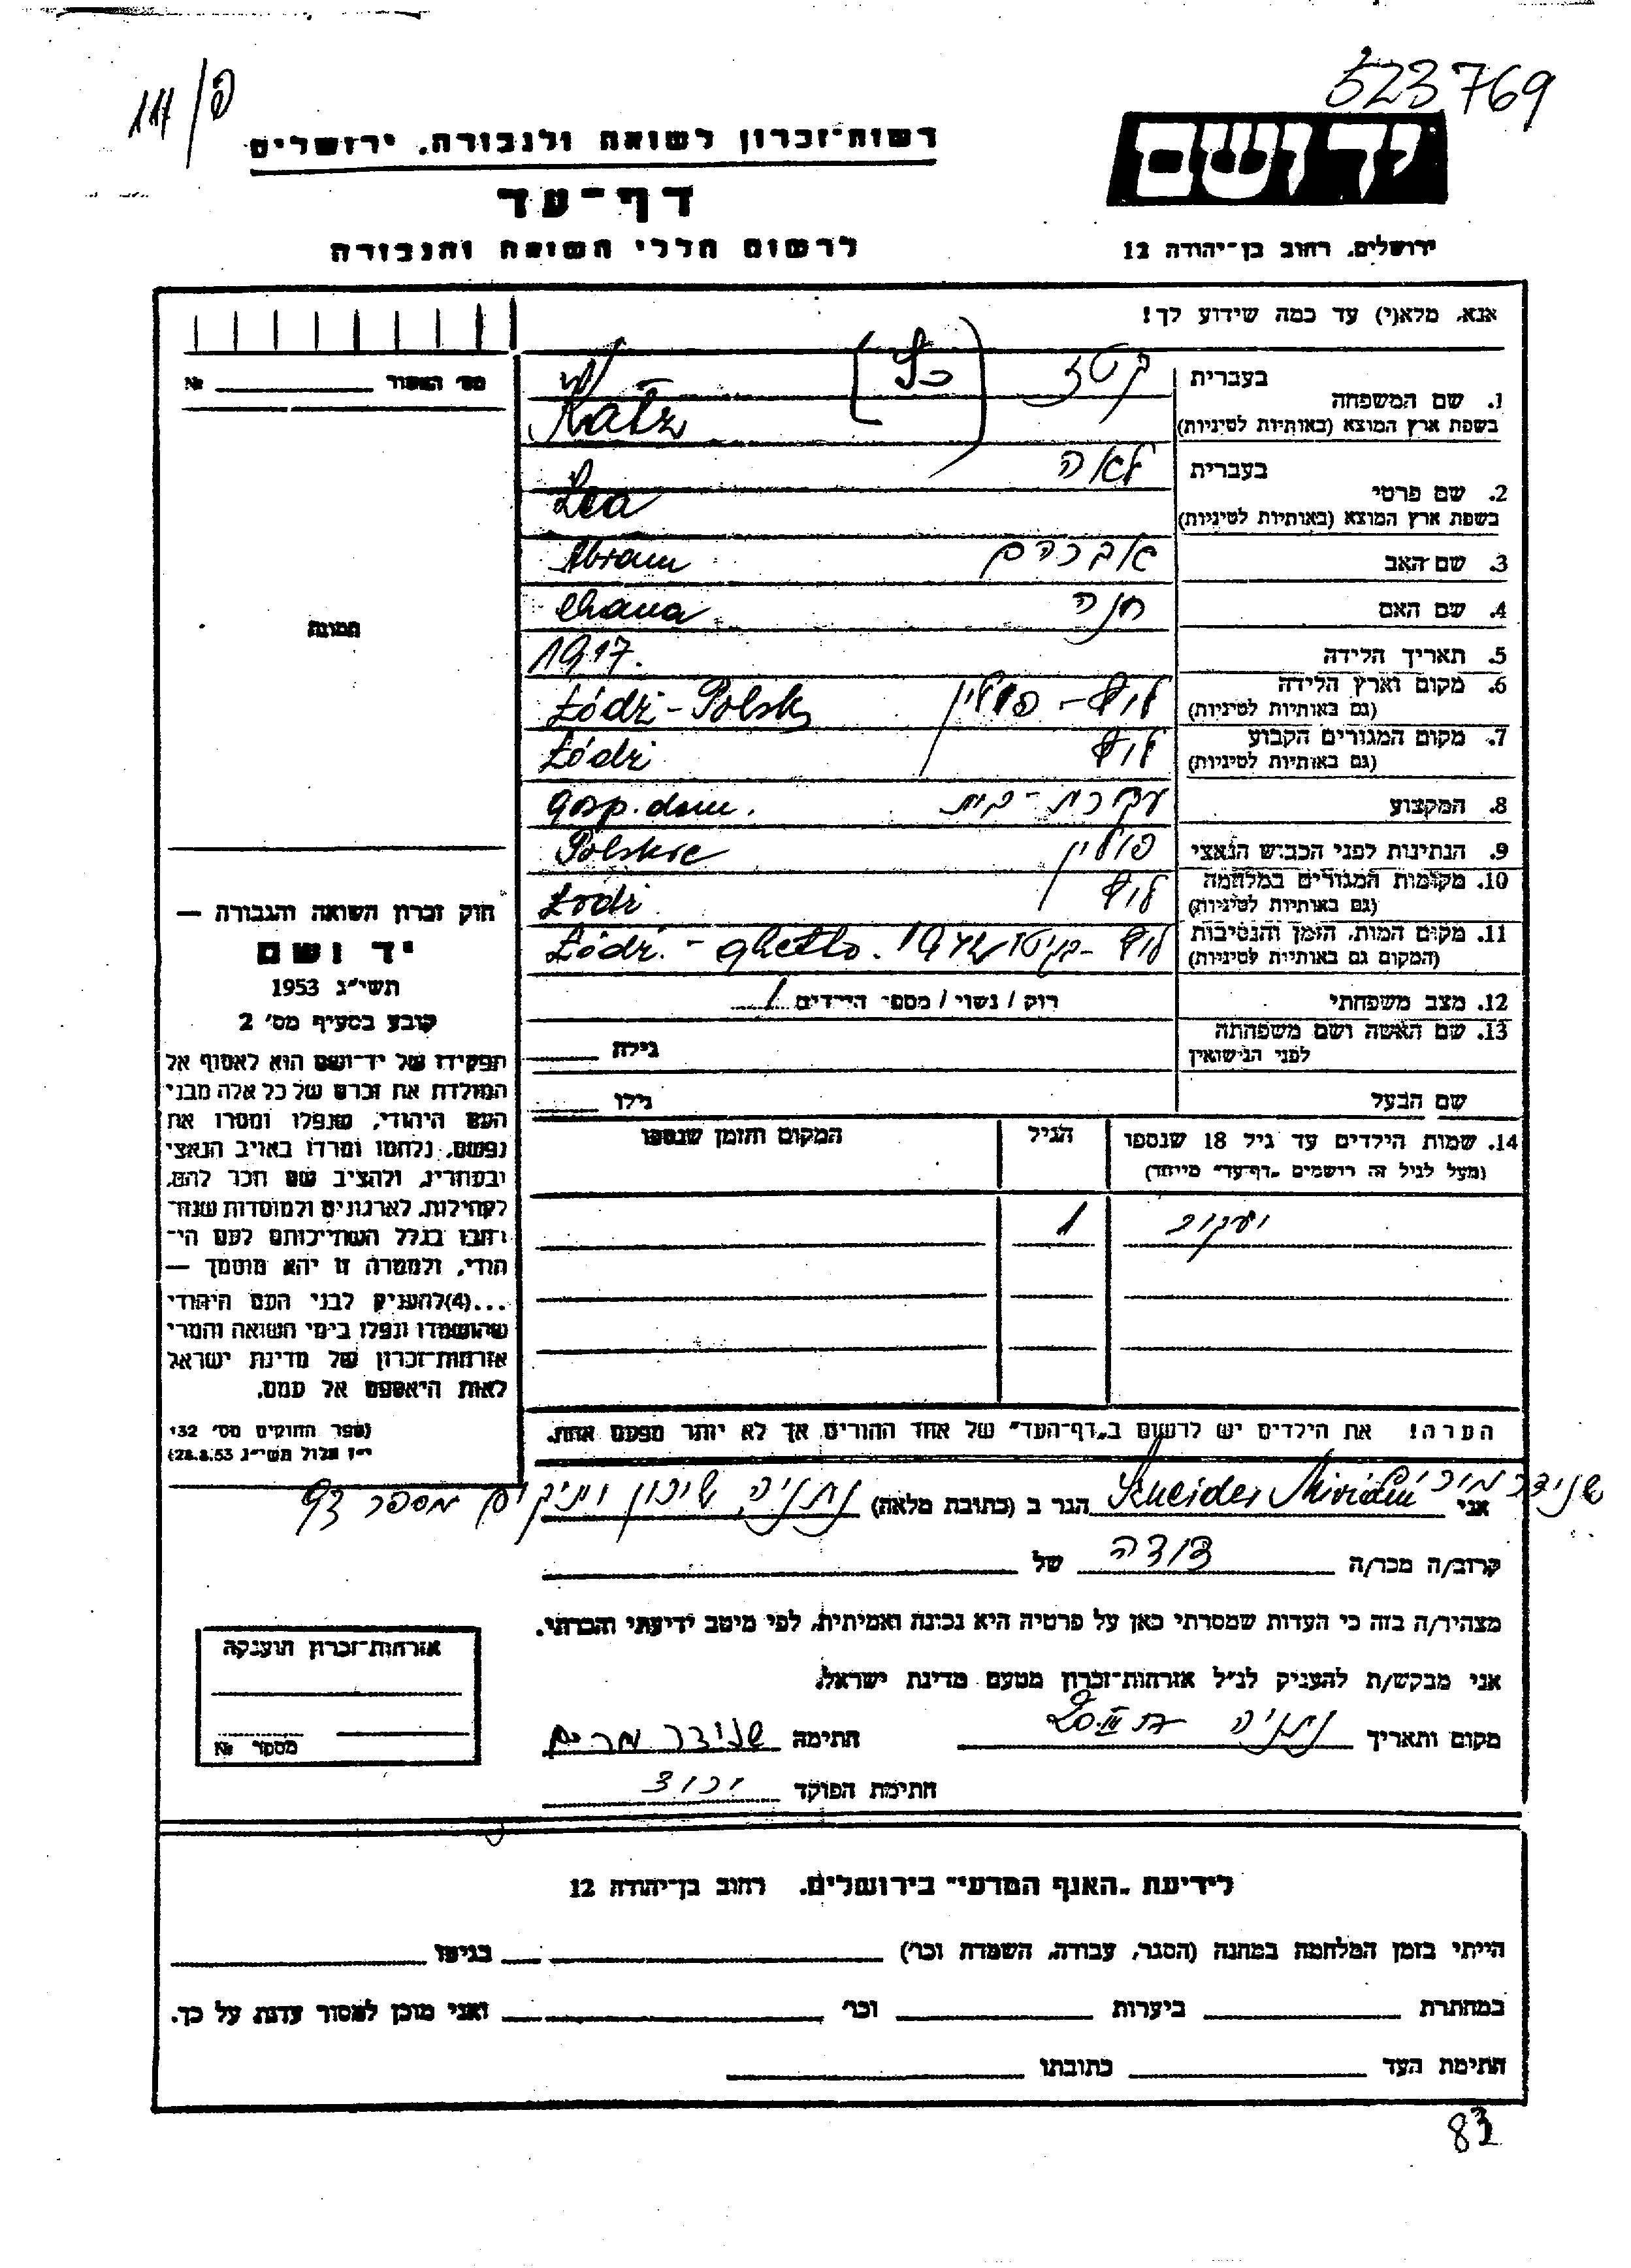 523769
פ/117
יד ושם
רשות-זכרון לשואה ולגבורה, ירושלים
דף-עד
לרשום חללי השואה והגבורה
ירושלים, רחוב בן-יהודה 12
אנא, מלא(י) עד כמה שידוע לך!
מס' האשור № 
תמונה
1. שם המשפחה בעברית קטז (כץ)
בשפת ארץ המוצא (באותיות לטיניות) Katz
2. שם פרטי בעברית לאה
בשפת ארץ המוצא (באותיות לטיניות) Lea
3. שם האב אברהם Abram
4. שם האם חנה Chana
5. תאריך הלידה 1917.
6. מקום וארץ הלידה (גם באותיות לטיניות) לודז' - פולין Łódź - Polska
7. מקום המגורים הקבוע (גם באותיות לטיניות) לודז' Łódź
8. המקצוע עקרת-בית gosp. dom.
9. הנתינות לפני הכבוש הנאצי פולין Polskie
10. מקומות המגורים במלחמה (גם באותיות לטיניות) לודז' Łodź
11. מקום המות, הזמן והנסיבות (המקום גם באותיות לטיניות) לודז' - בגיטו 1942 Łódź. - ghetto.
12. מצב משפחתי רוק / נשוי / מספר הילדים 1
13. שם האשה ושם משפחתה לפני הנישואין גילה
שם הבעל גילו
14. שמות הילדים עד גיל 18 שנספו הגיל המקום והזמן שנספו
(מעל לגיל זה רושמים "דף-עד" מיוחד)
יעקוב 1
הערה! את הילדים יש לרשום ב"דף-העד" של אחד ההורים אך לא יותר מפעם אחת.
חוק זכרון השואה והגבורה —
יד ושם
תשי"ג 1953
קובע בסעיף מס' 2
תפקידו של יד-ושם הוא לאסוף אל
המולדת את זכרם של כל אלה מבני
העם היהודי, שנפלו ומסרו את
נפשם, נלחמו ומרדו באויב הנאצי
ובעוזריו, ולהציב שם וזכר להם,
לקהילות, לארגונים ולמוסדות שנח-
רבו בגלל השתייכותם לעם היי-
הודי, ולמטרה זו יהא מוסמך —
...(4) להעניק לבני העם היהודי
שהושמדו ונפלו בימי השואה והמרי
אזרחות-זכרון של מדינת ישראל
לאות היאספם אל עמם.
(ספר החוקים מס' 132
י"ז אלול תשי"ג 28.8.53)
אני שנידר מרים Sneider Miriam הגר ב (כתובת מלאה) נתניה, שיכון ותיקים מספר
קרוב/ה מכר/ה דודה של
מצהיר/ה בזה כי העדות שמסרתי כאן על פרטיה היא נכונה ואמיתית, לפי מיטב ידיעתי והכרתי.
אני מבקש/ת להעניק לנ"ל אזרחות-זכרון מטעם מדינת ישראל.
מקום ותאריך נתניה חתימה שנידר מרים
חתימת הפוקד
אזרחות-זכרון הוענקה
מספר №
לידיעת "האגף המדעי" בירושלים, רחוב בן-יהודה 12
הייתי בזמן המלחמה במחנה (הסגר, עבודה, השמדה וכו') בגיטו
במחתרת ביערות וכו' ואני מוכן למסור עדות על כך.
חתימת העד כתובתו